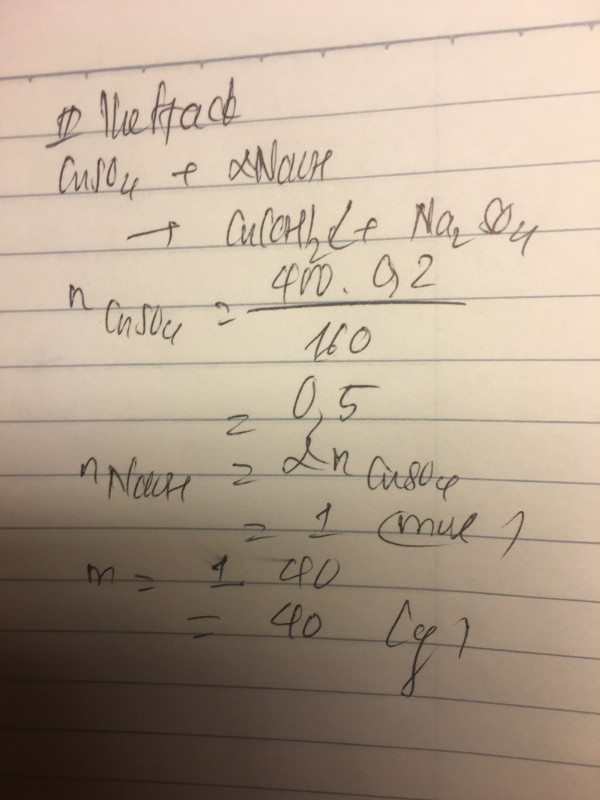 CuSO4 + 2NaOH
→ Cu(OH)2↓ + Na2SO4
n CuSO4 = 400. 0,2 / 160
= 0,5
n NaOH = 2n CuSO4
= 1 (mol)
m = 1. 40
= 40 (g)